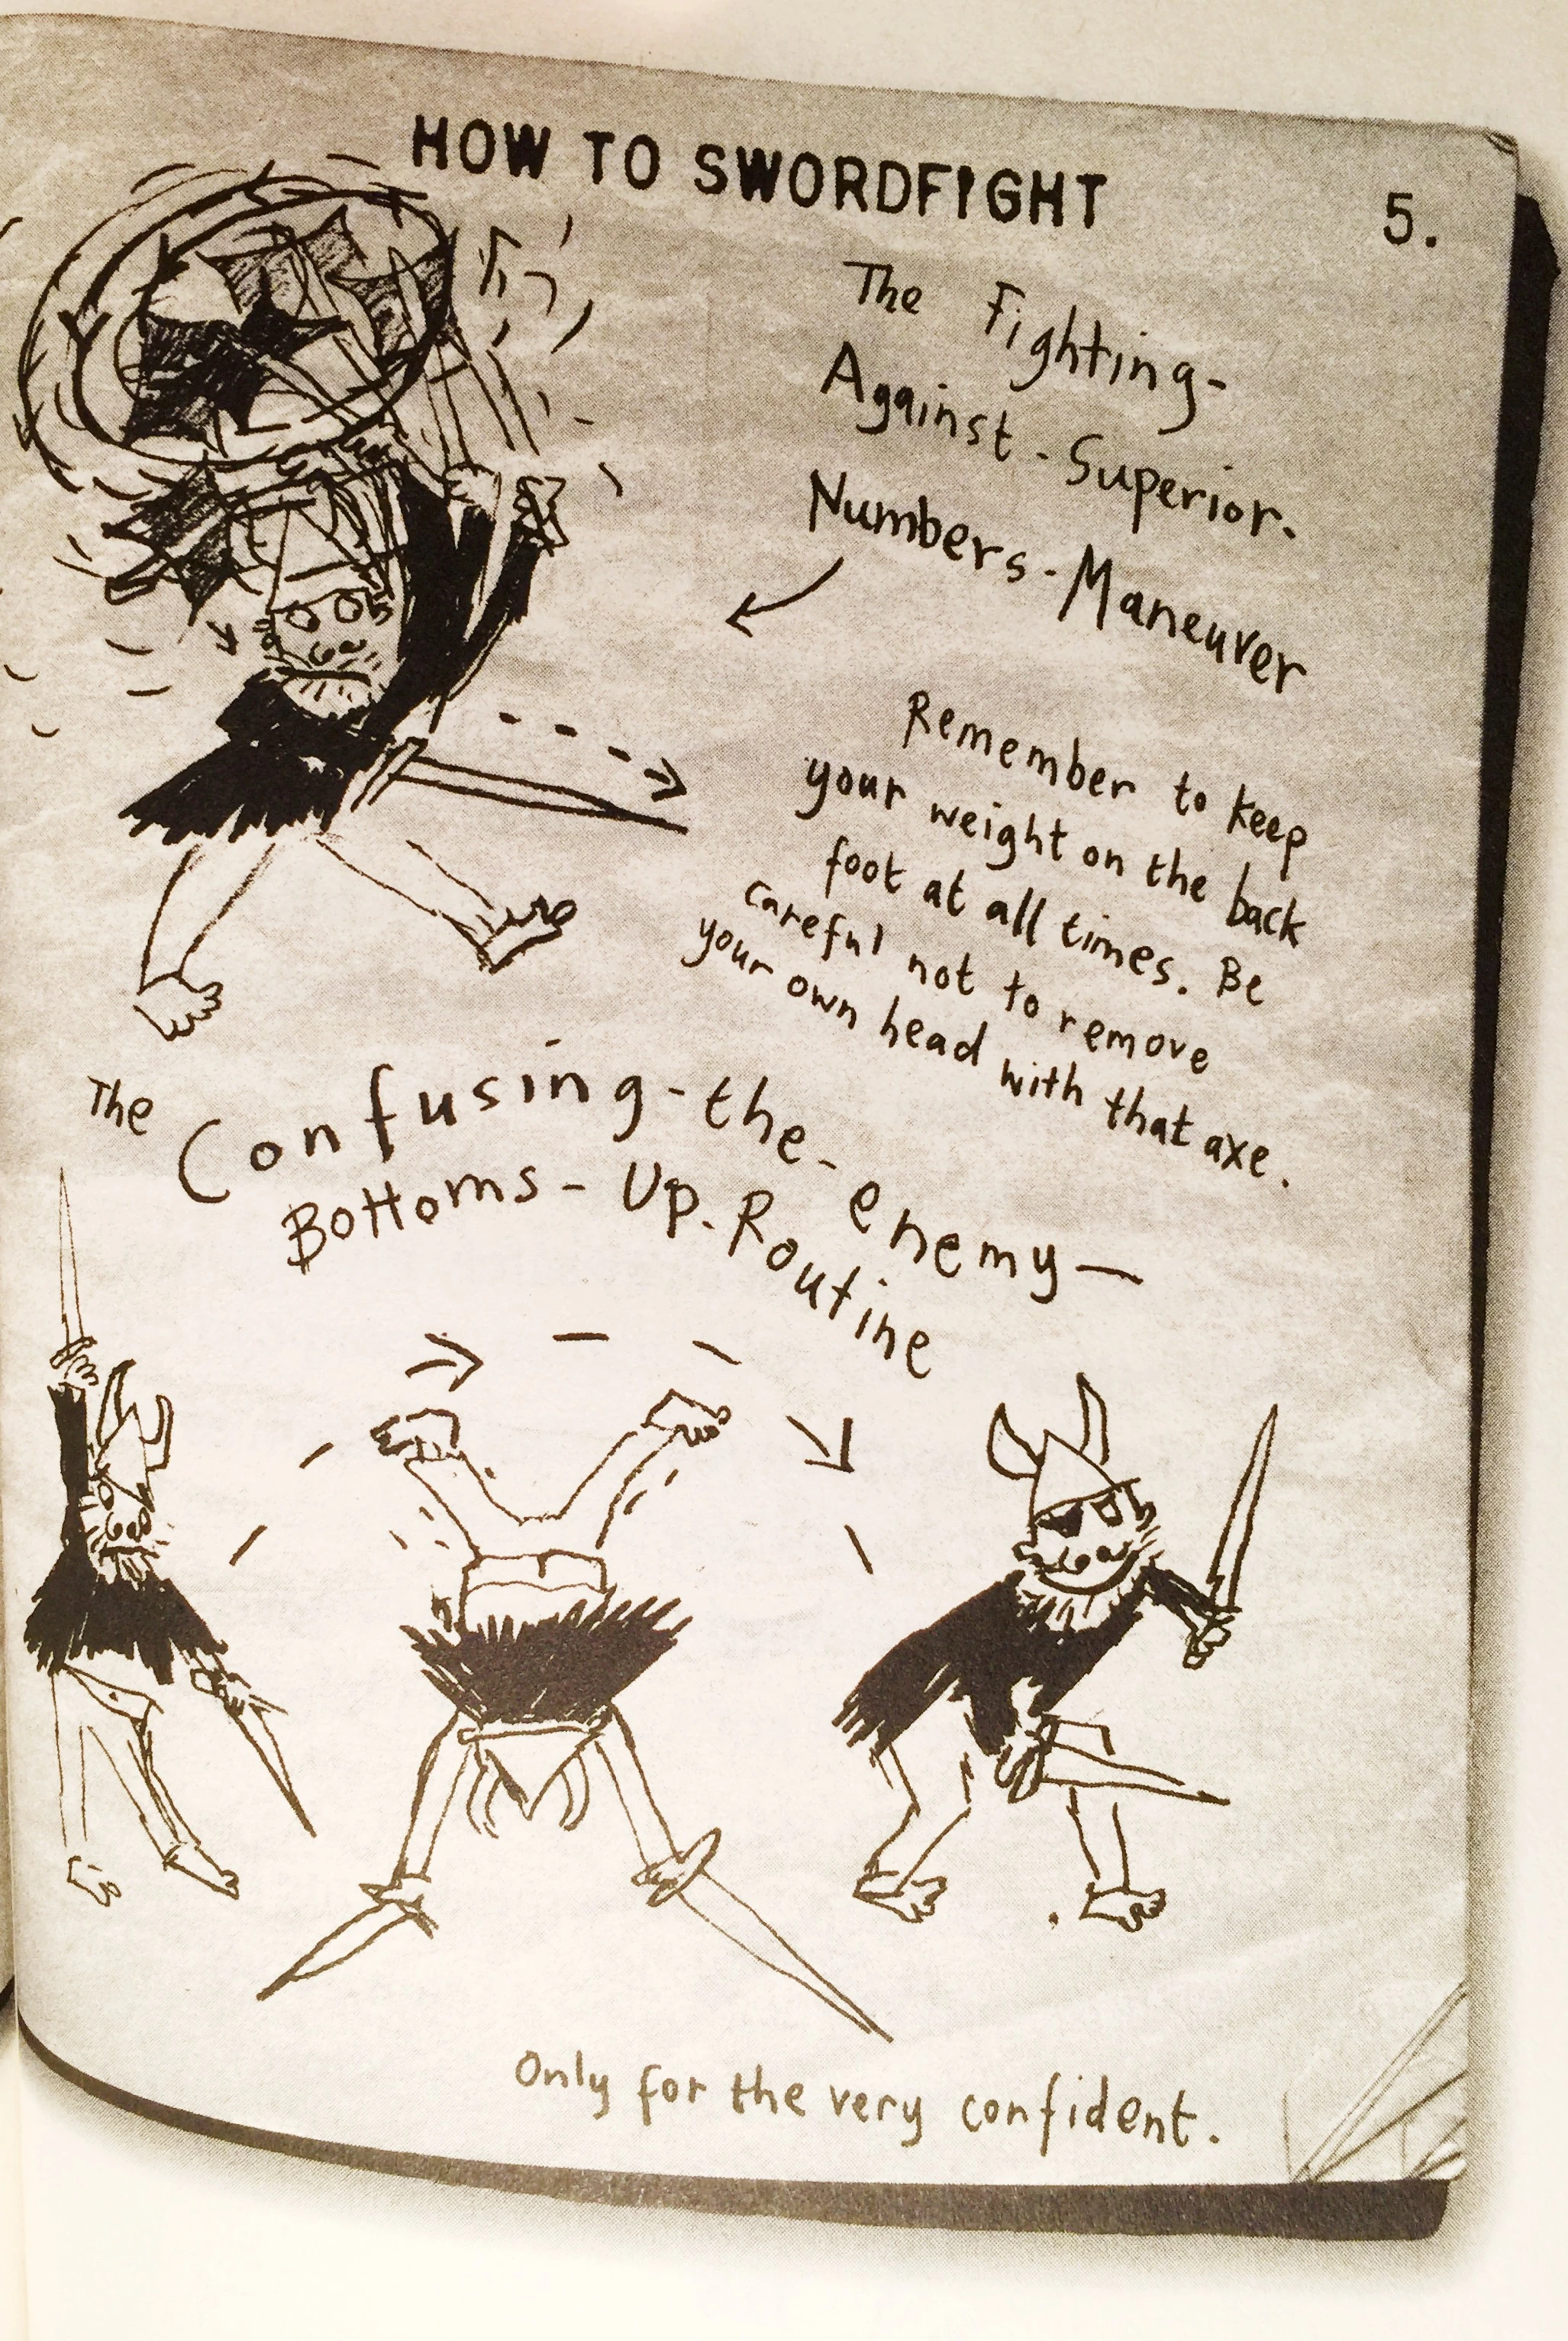 HOW TO SWORDFIGHT
5.
The Fighting-
Against-Superior-
Numbers-Maneuver
Remember to keep
your weight on the back
foot at all times. Be
careful not to remove
your own head with that axe.
The Confusing-the-enemy-
Bottoms-Up-Routine
Only for the very confident.